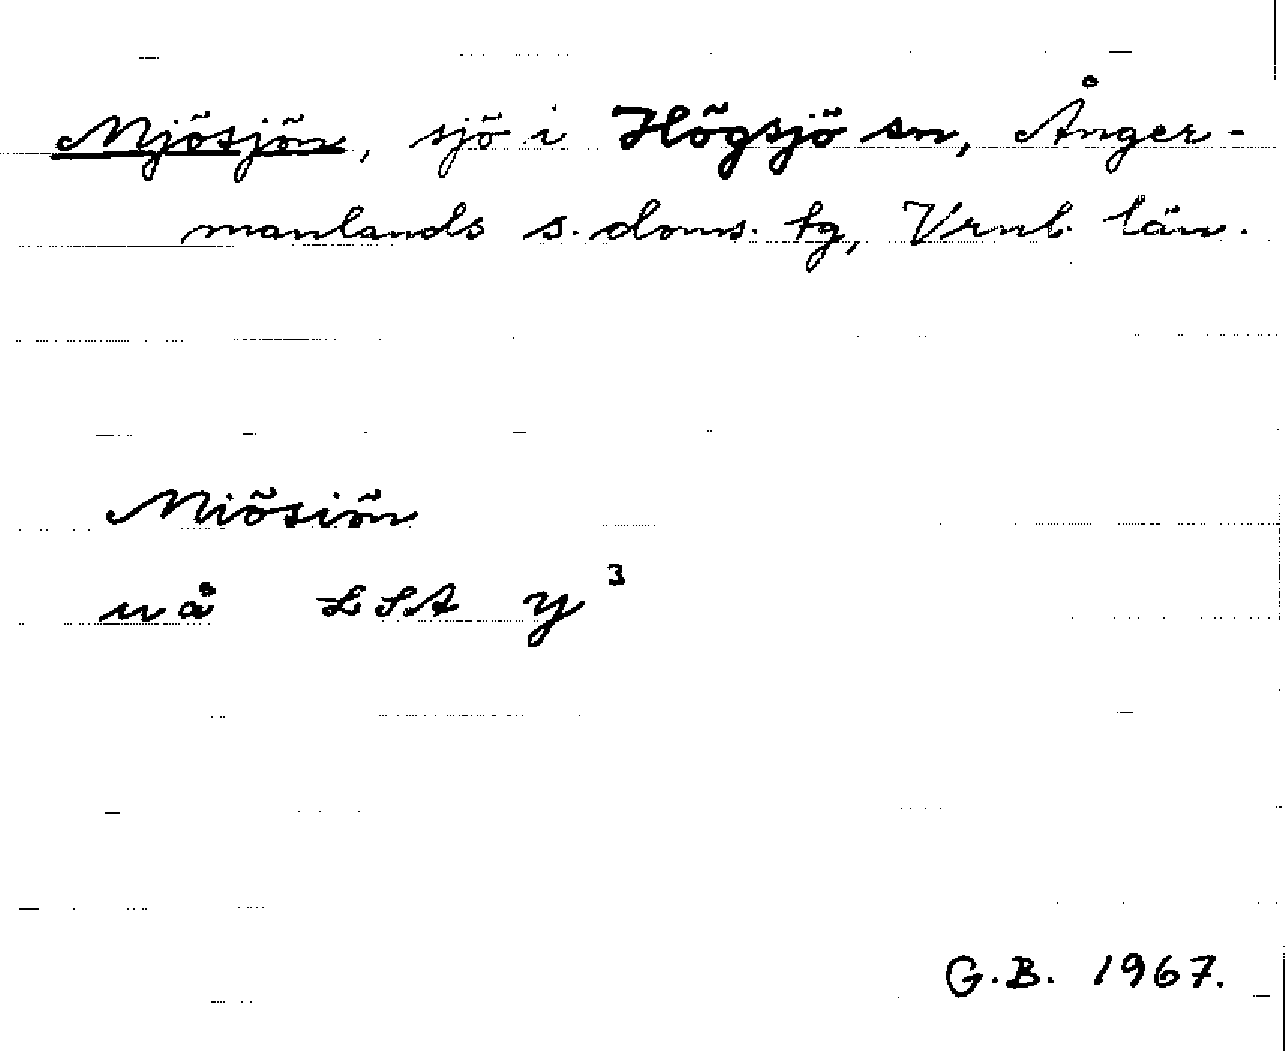 Mjösjön, sjö i Högsjö sn, Ånger-
manlands s. doms. tg, Vrnl. län.
Miösiön
uå LSA y³
G.B. 1967.